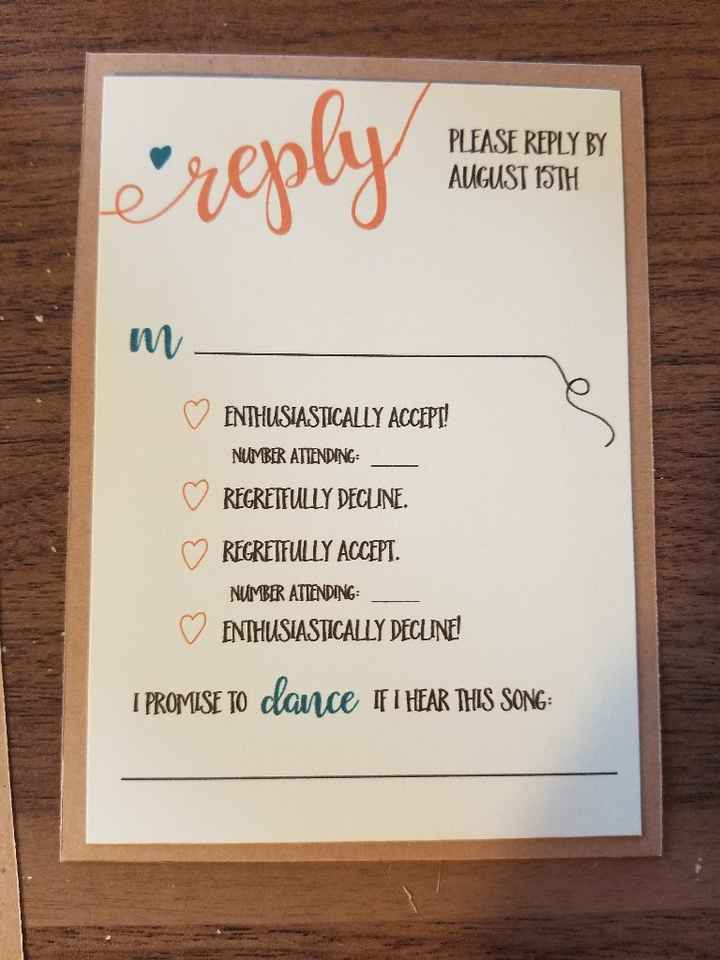 reply
PLEASE REPLY BY
AUGUST 15TH
m
ENTHUSIASTICALLY ACCEPT!
NUMBER ATTENDING: ____
REGRETFULLY DECLINE.
REGRETFULLY ACCEPT.
NUMBER ATTENDING: ____
ENTHUSIASTICALLY DECLINE!
I PROMISE TO dance IF I HEAR THIS SONG: